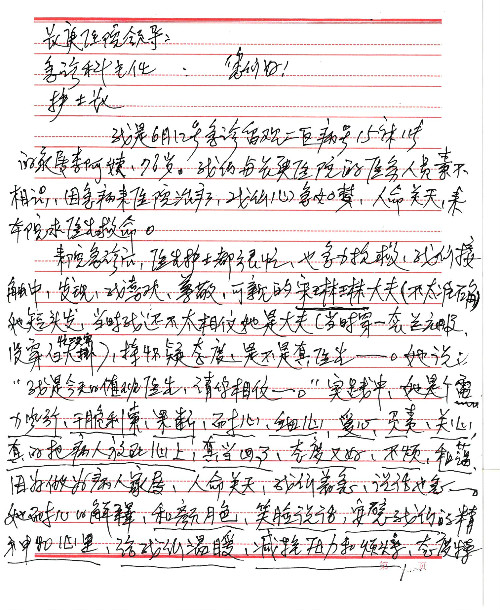 长庚医院领导：
急诊科主任： 您们好！
护士长
我是6月12号急诊留观二区病号15床
的家属李阿姨，78岁。我们与长庚医院的医务人员素不
相识，因急病来医院治疗，我们心急如焚，人命关天，来
本院求医生救命。
来院急诊后，医生护士都很忙，也尽力抢救，我们接
触中，发现，我喜欢、尊敬、可亲的宋琳琳大夫（不太准确
她短头发，当时我还不太相信她是大夫（当时穿一套兰衣服，
没穿白大褂），择怀疑态度，是不是真医生——。她说：
“我是今天的值班医生，请你相信——。”实践中，她是个
力步行，干脆利索、果断，而耐心，细心，爱心，负责，关心，
真的把病人放在心上，真学四了，态度又好，不烦，和蔼
因为做为病人家属，人命关天，我们着急，说话也急——
她耐心的解释，和颜月色，笑脸说话，安慰我们的精
神和心里，给我们温暖，减轻压力和烦李，态度
1